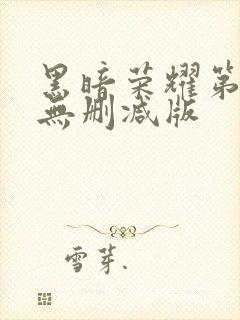 黑暗荣耀第
無删减版
雪芽.